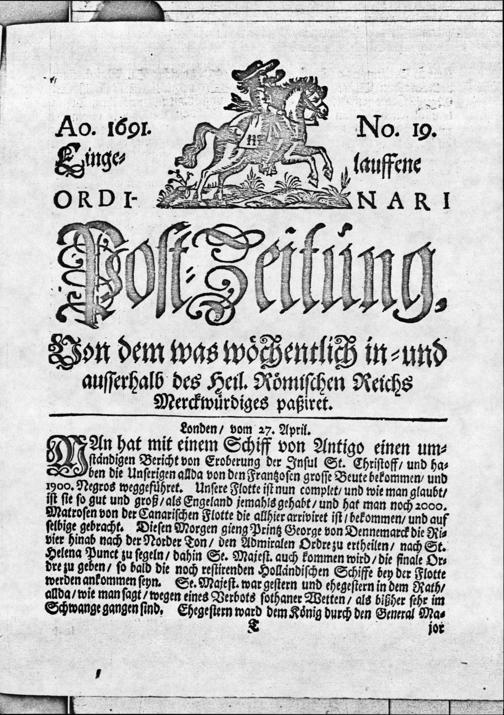 Ao. 1691.
No. 19.
Einge-
lauffene
ORDI-
NARI
Post-Zeitung,
Von dem was wöchentlich in-und
ausserhalb des Heil. Römischen Reichs
Merckwürdiges paßiret.
Londen/ vom 27. April.
MAn hat mit einem Schiff von Antigo einen um-
ständigen Bericht von Eroberung der Insul St. Christoff/ und ha-
ben die Unserigen allda von den Frantzosen grosse Beute bekommen/ und
1900. Negros weggeführet. Unsere Flotte ist nun complet/ und wie man glaubt/
ist sie so gut und groß/ als Engeland jemahls gehabt/ und hat man noch 2000.
Matrosen von der Canarischen Flotte die allhier arriviret ist/ bekommen/ und auf
selbige gebracht. Diesen Morgen gieng Printz George von Dennemarck die Ri-
vier hinab nach der Norder Ton/ den Admiralen Ordre zu ertheilen/ nach St.
Helena Punct zu segeln/ dahin Se. Majest. auch kommen wird/ die finale Or-
dre zu geben/ so bald die noch restirenden Holländischen Schiffe bey der Flotte
werden ankommen seyn. Se. Majest. war gestern und ehegestern in dem Rath/
allda/ wie man sagt/ wegen eines Verbots sothaner Wetten/ als bißher sehr im
Schwange gangen sind. Ehegestern ward dem König durch den General Ma-
T
jor